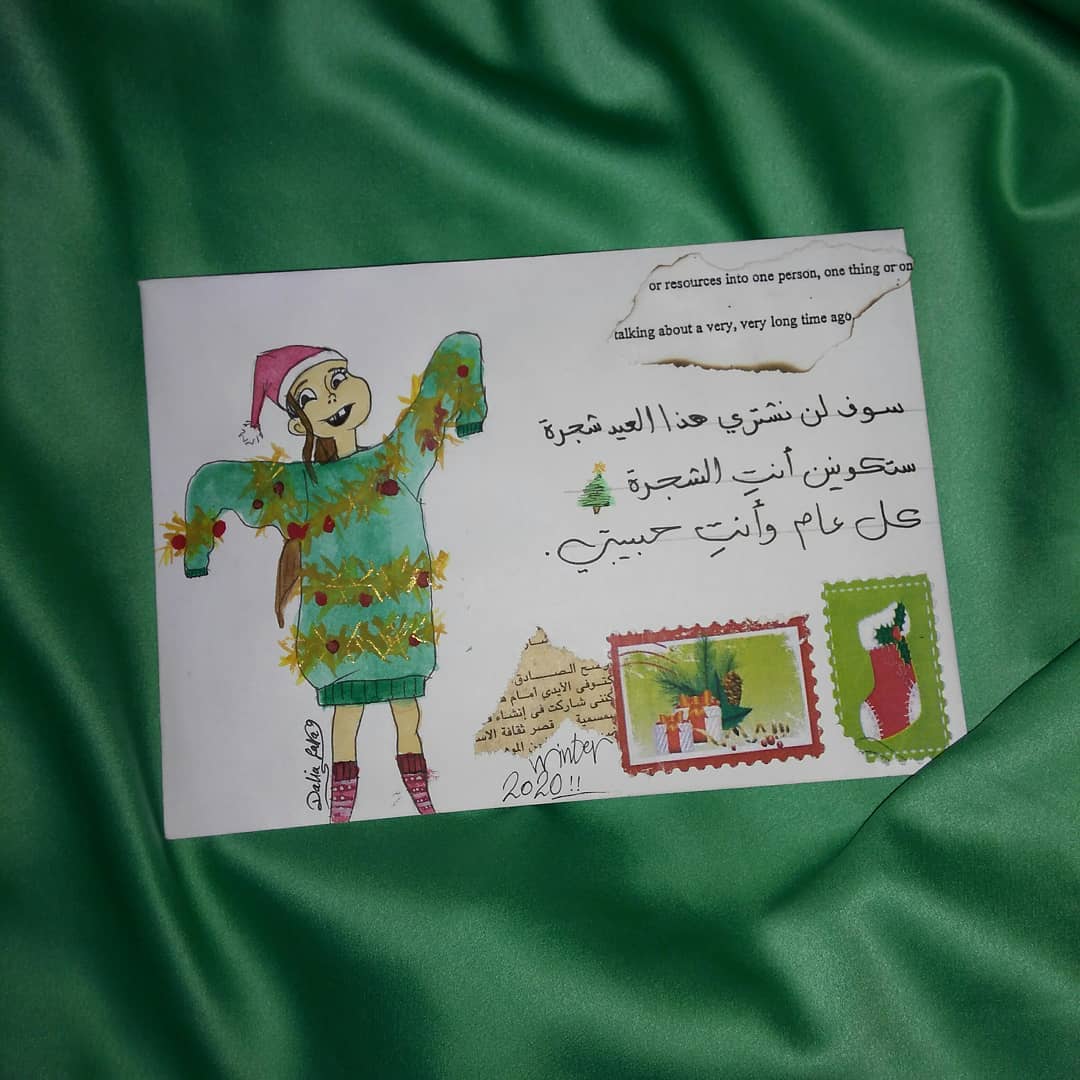 or resources into one person, one thing or on
talking about a very, very long time ago,
سوف لن نشتري هذا العيد شجرة
ستكونين أنتِ الشجرة
كل عام وأنتِ حبيبتي.
الصادق
كتوفى الأيدي أمام
كننى شاركت فى إنشاء
بمسمية قصر ثقافة الاس
winter
2020!!
Dalia